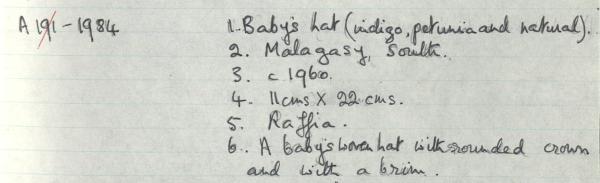 A 191-1984
1. Baby's hat (indigo, petunia and natural).
2. Malagasy, South.
3. c 1960.
4. 11cms X 22 cms.
5. Raffia.
6. A baby's woven hat with rounded crown
and with a brim.